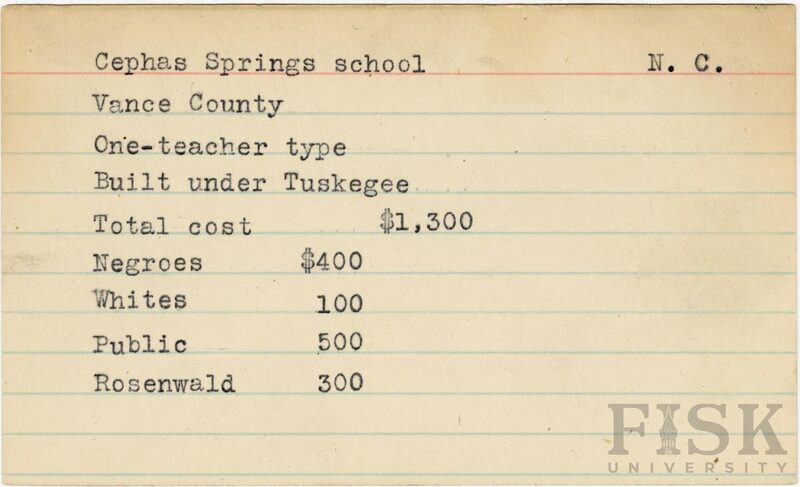 Cephas Springs school N. C.
Vance County
One-teacher type
Built under Tuskegee
Total cost $1,300
Negroes $400
Whites 100
Public 500
Rosenwald 300
FISK
UNIVERSITY